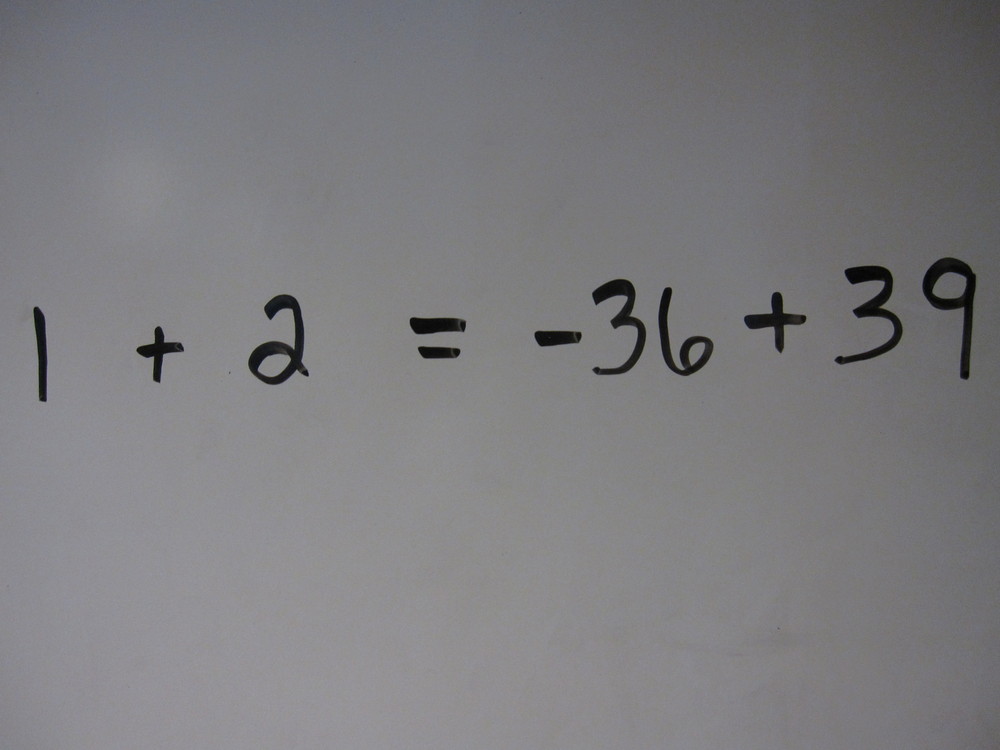 1 + 2 = -36 + 39